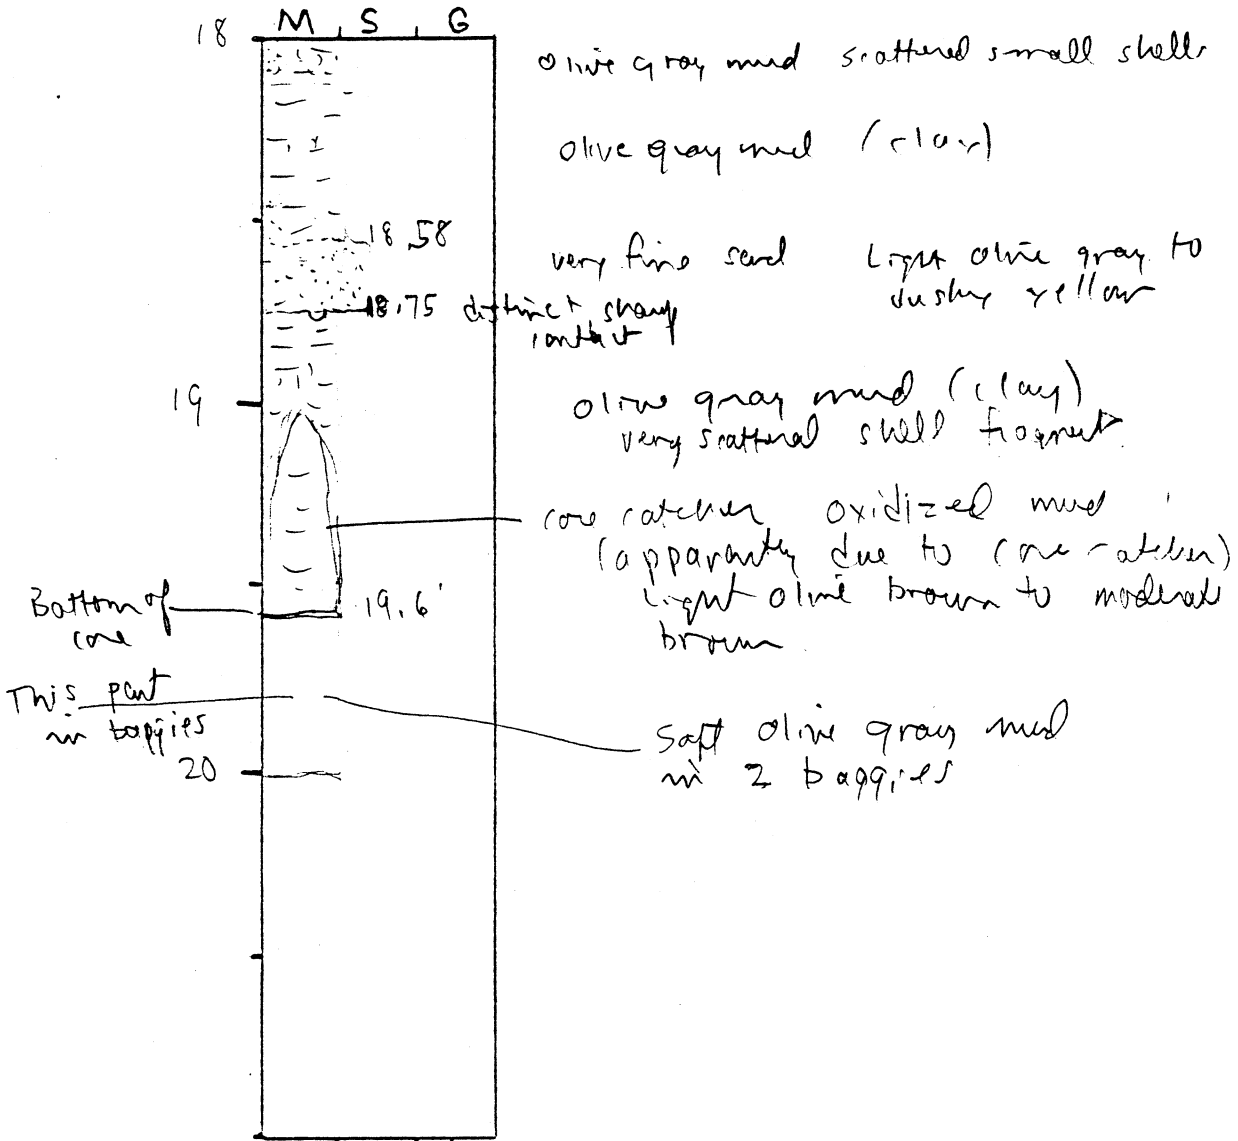 M S G
18
olive gray mud scattered small shells
olive gray mud (clay)
18.58
very fine sand Light olive gray to
dusky yellow
18.75 distinct sharp
contact
19
olive gray mud (clay)
very scattered shell fragments
core catcher oxidized mud
(apparantly due to core catcher)
Light olive brown to moderate
brown
Bottom of
core
19.6'
This part
in baggies
Soft olive gray mud
in 2 baggies
20